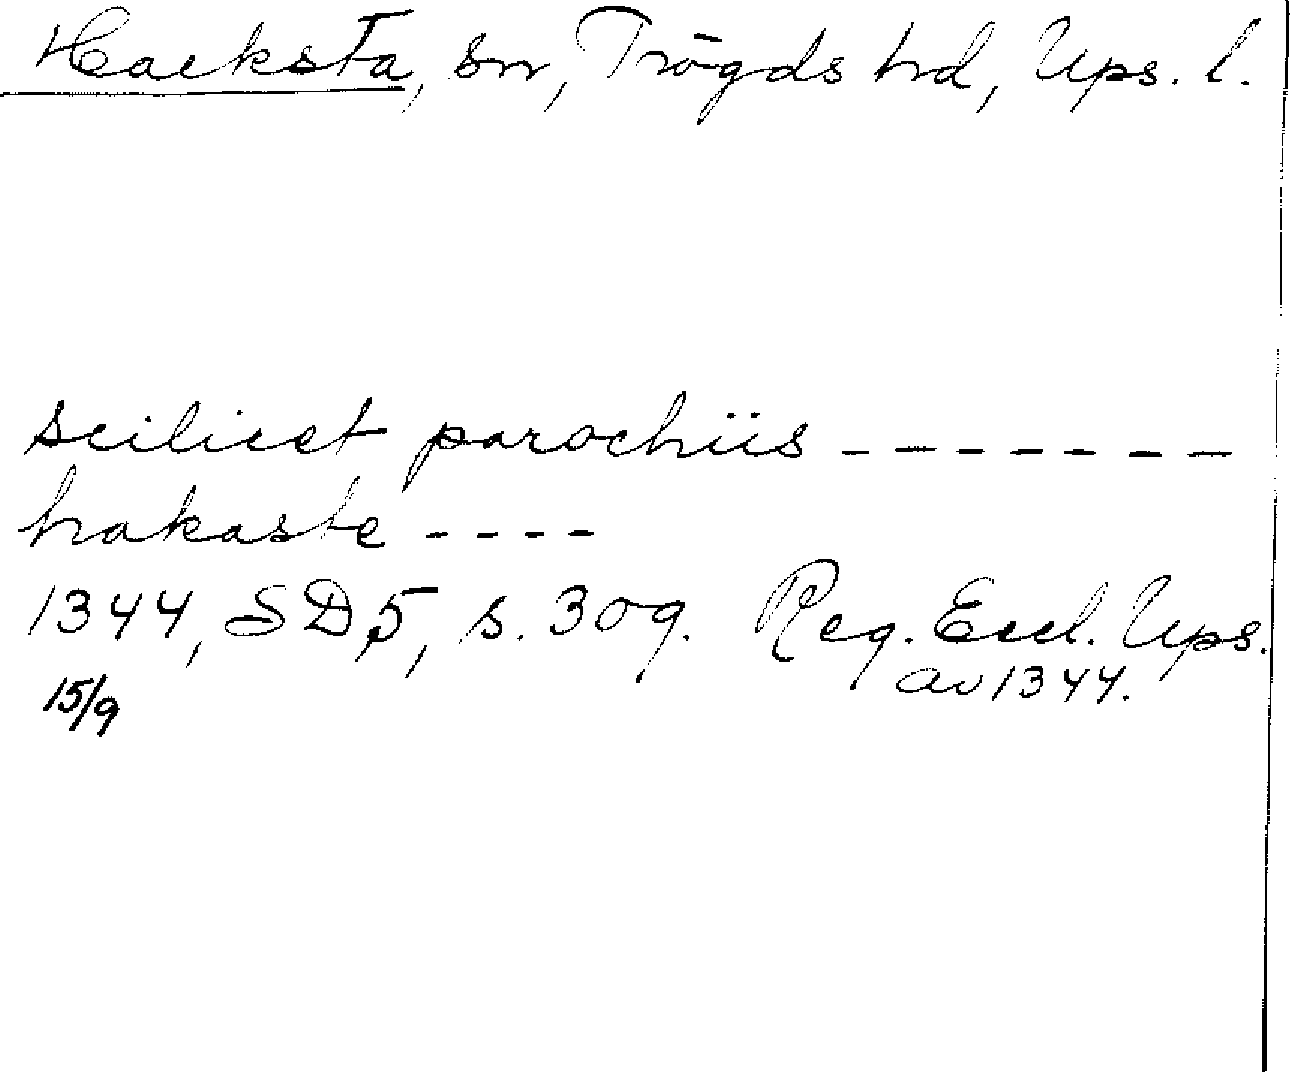 Hacksta, sn, Trögds hd, Ups. l.
scilicet parochiis - - - - - - -
hakaste - - - -
1344, SD5, s. 309. Reg. Eccl. Ups.
av 1344.
15/9